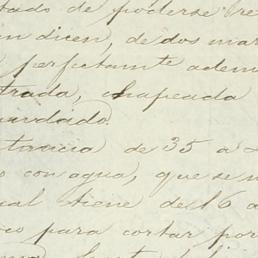 tado de poderse
n dicen, de dos mar
perfectamte adem
trada, chapeada
uardado.
tancia de 35 a
o con agua, que se
ual tiene de 16 a
co para cortar por